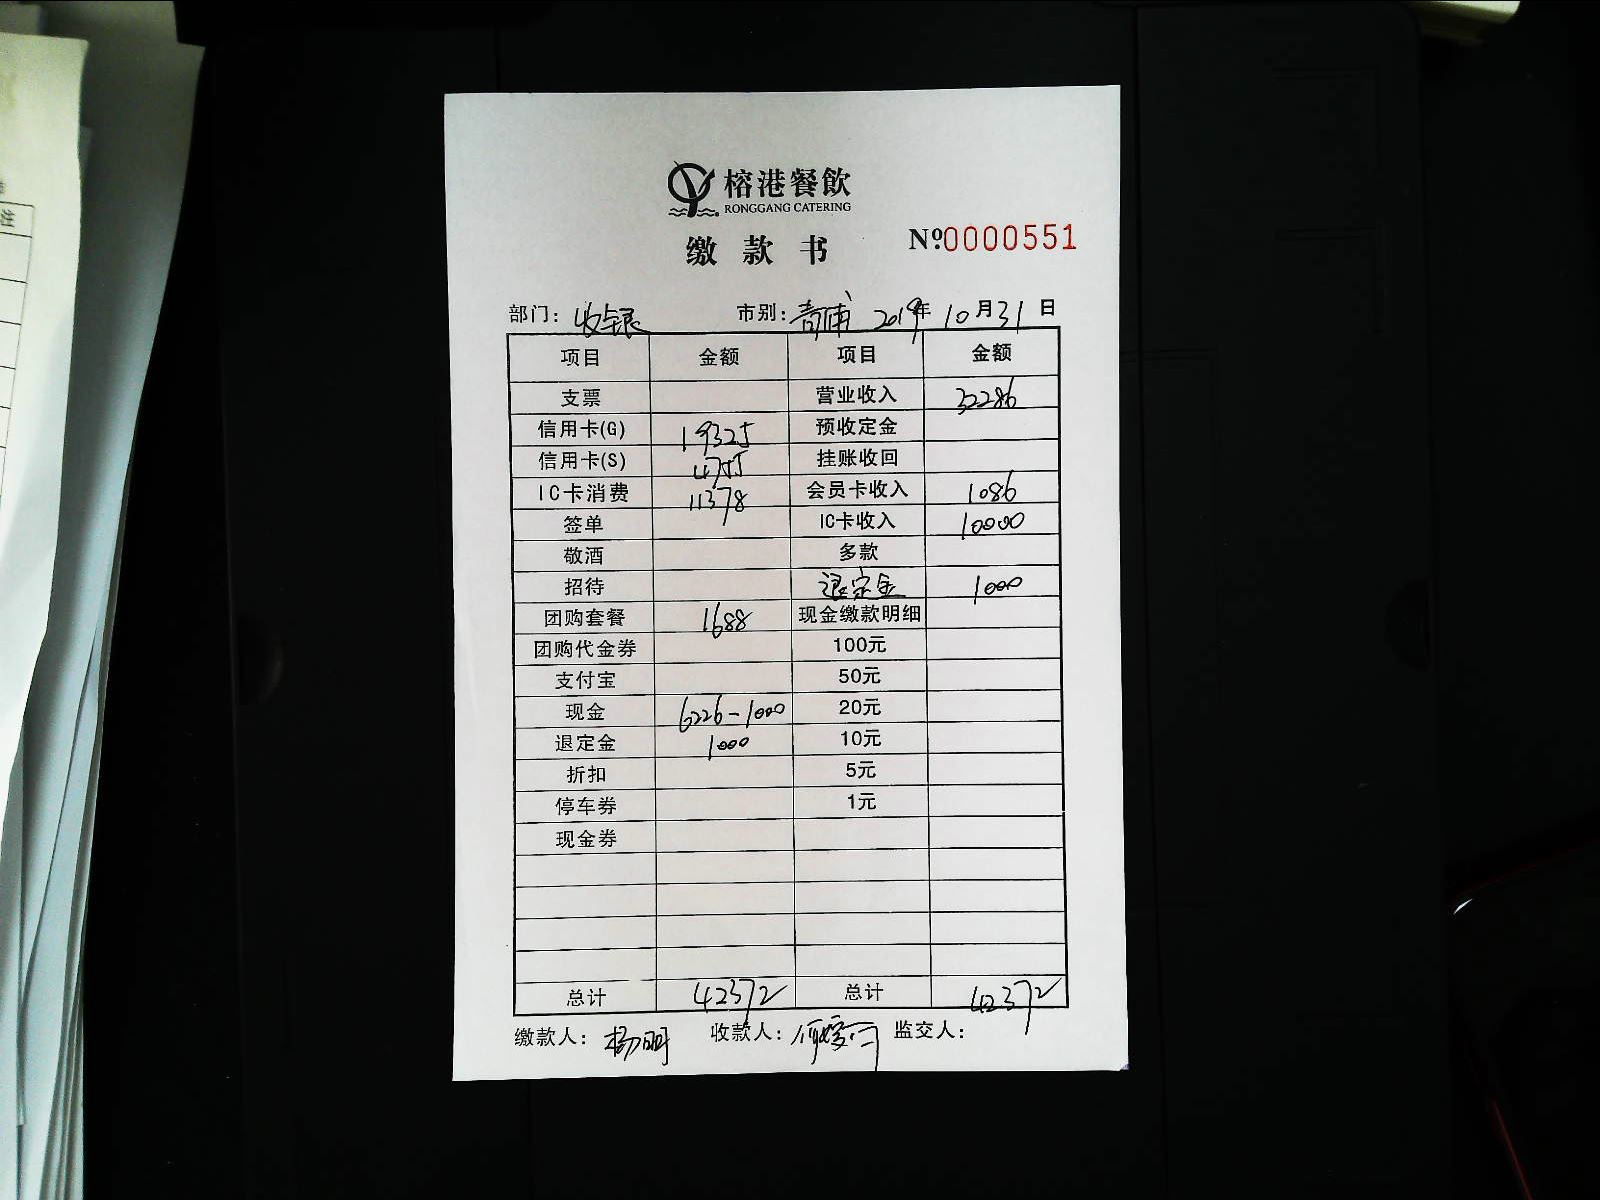 注
榕港餐飲
RONGGANG CATERING
缴款书
№0000551
部门: 收银 市别: 青浦 2019年10月31日
项目 金额 项目 金额
支票 营业收入 32286
信用卡(G) 19325 预收定金
信用卡(S) 4755 挂账收回
IC卡消费 11378 会员卡收入 1086
签单 IC卡收入 10000
敬酒 多款
招待 退定金 1000
团购套餐 1688 现金缴款明细
团购代金券 100元
支付宝 50元
现金 6226-1000 20元
退定金 1000 10元
折扣 5元
停车券 1元
现金券
总计 42372 总计 42372
缴款人: 杨明 收款人: 监交人: